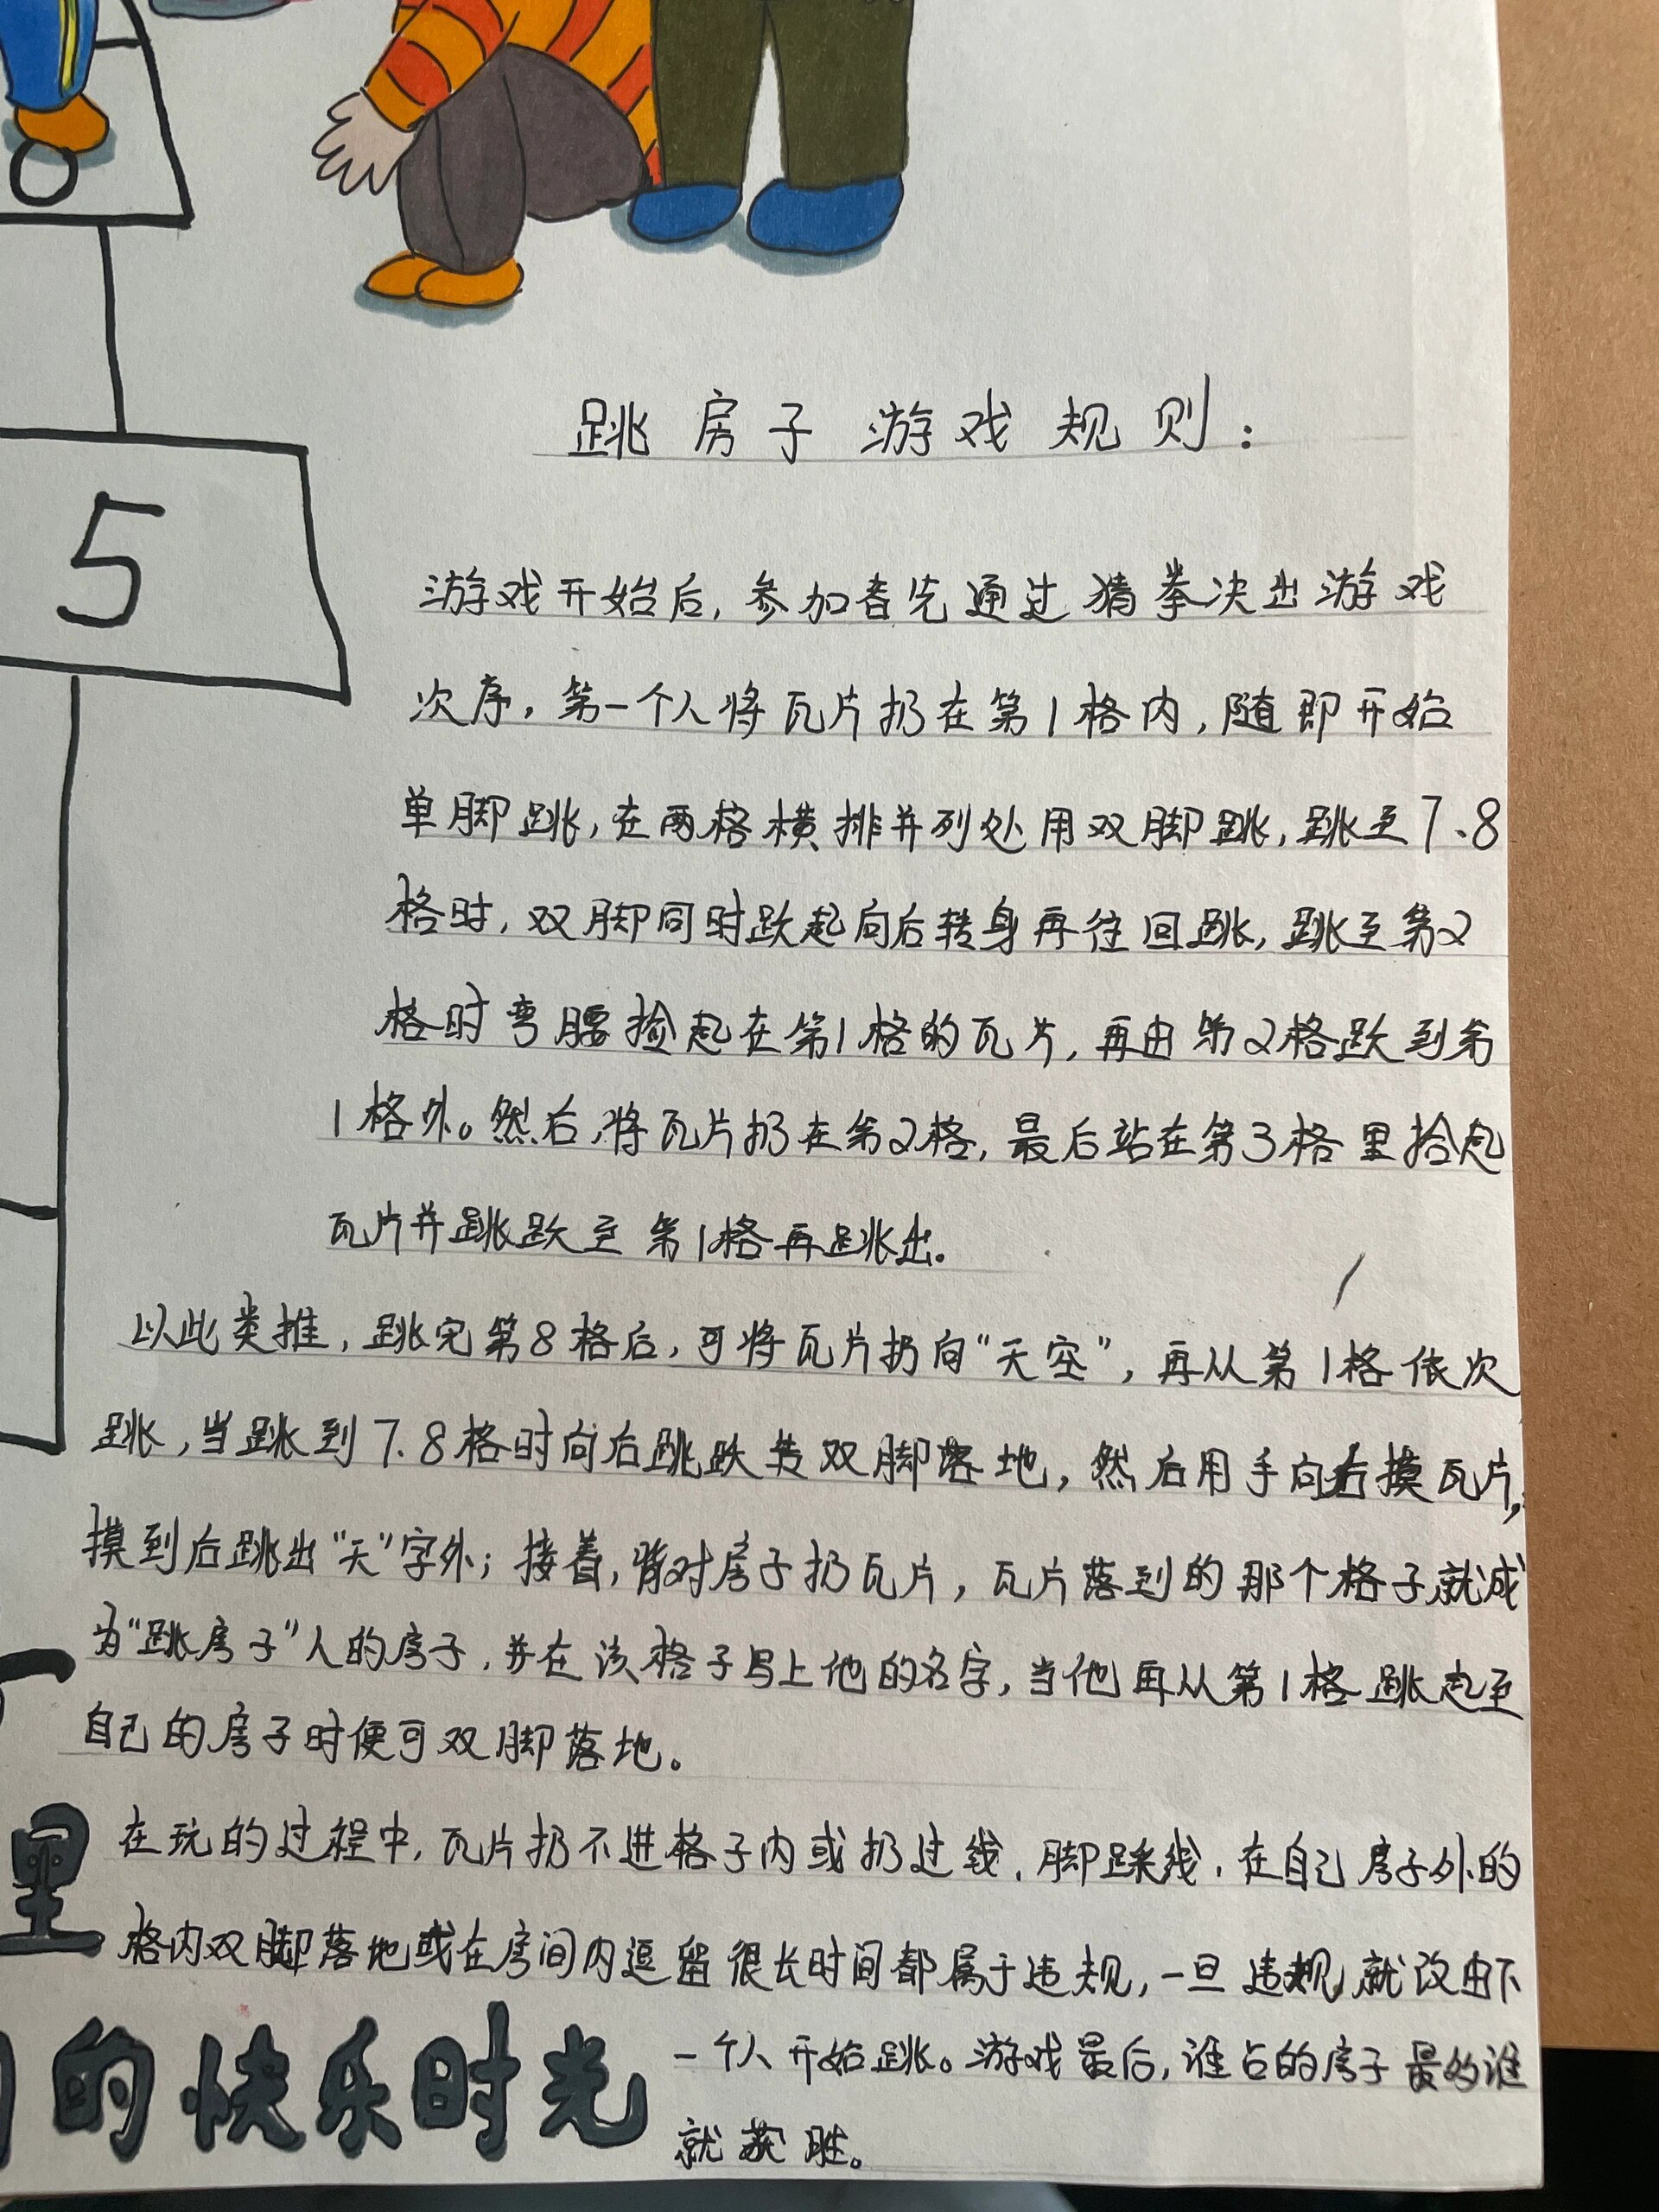 5
跳房子游戏规则：
游戏开始后，参加者先通过猜拳决出游戏
次序，第一个人将瓦片扔在第1格内，随即开始
单脚跳，在两格横排并列处用双脚跳，跳至7、8
格时，双脚同时跃起向后转身再往回跳，跳至第2
格时弯腰捡起在第1格的瓦片，再由第2格跃到第
1格外。然后，将瓦片扔在第2格，最后站在第3格里拾起
瓦片并跳跃至第1格再跳出。
以此类推，跳完第8格后，可将瓦片扔向“天空”，再从第1格依次
跳，当跳到7、8格时向后跳跃转双脚落地，然后用手向右摸瓦片，
摸到后跳出“天”字外；接着，背对房子扔瓦片，瓦片落到的那个格子就成
为“跳房子”人的房子，并在该格子写上他的名字，当他再从第1格跳起至
自己的房子时便可双脚落地。
在玩的过程中，瓦片扔不进格子内或扔过线、脚踩线，在自己房子外的
格内双脚落地或在房间内逗留很长时间都属于违规，一旦违规，就改由下
一个人开始跳。游戏最后，谁占的房子最多谁
就获胜。
里
的快乐时光